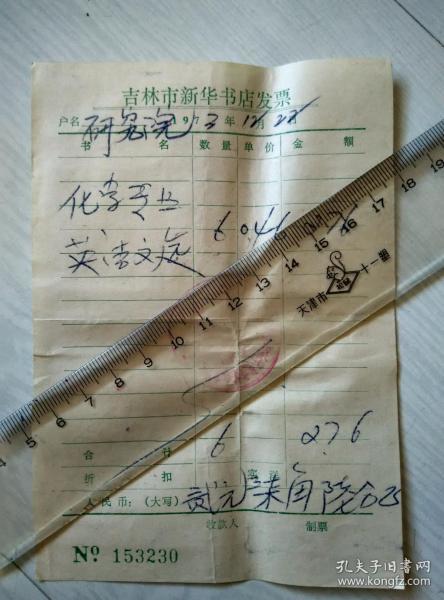 吉林市新华书店发票
户名 研究院 973年12月28
书 名 数量 单价 金 额
化学专业
英语文选 6 0.46 276
合 计 6 276
折 扣 实 洋
人民币：(大写) 贰元柒角陆分
收款人 制票
№ 153230
4 5 6 7 8 9 10 11 12 13 14 15 16 17 18 19
天津市 十一塑
孔夫子旧书网
www.kongfz.com